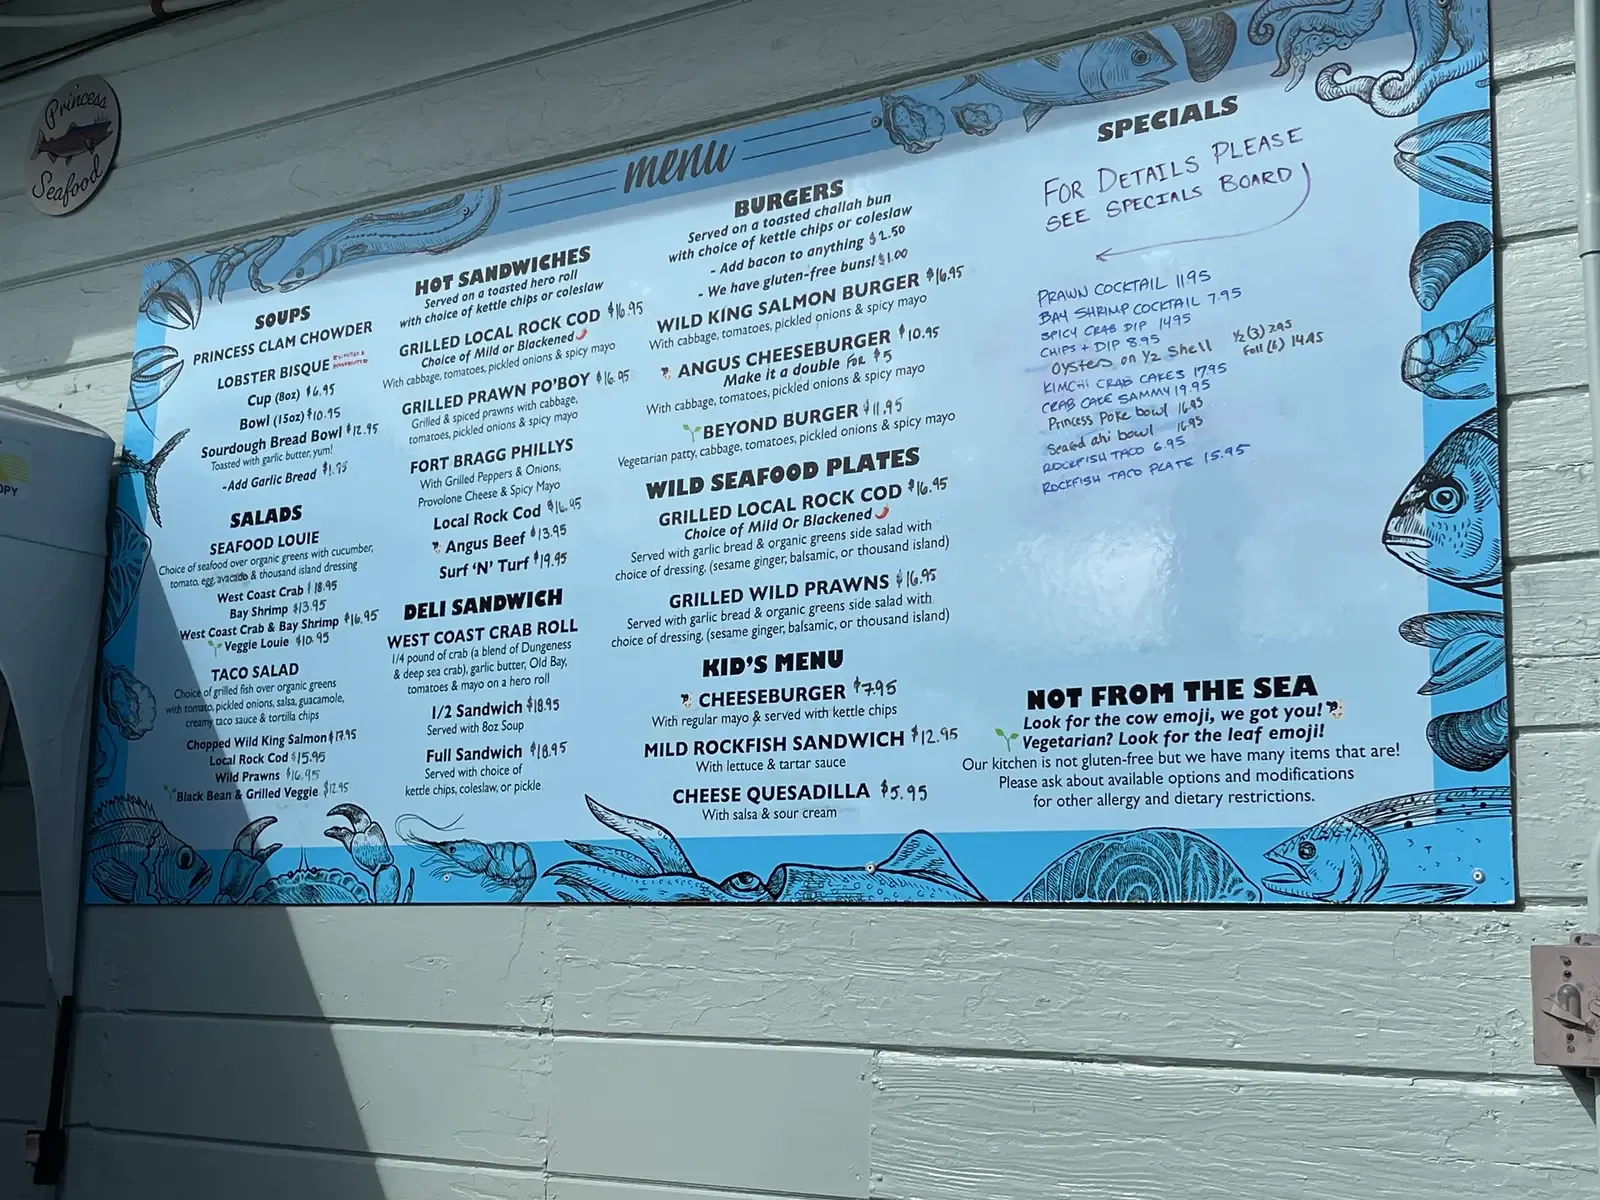 Princess
Seafood
menu
SOUPS
PRINCESS CLAM CHOWDER
LOBSTER BISQUE
Cup (8oz) $6.95
Bowl (15oz) $10.95
Sourdough Bread Bowl $12.95
Toasted with garlic butter, yum!
-Add Garlic Bread $1.95
SALADS
SEAFOOD LOUIE
Choice of seafood over organic greens with cucumber,
tomato, egg, avocado & thousand island dressing
West Coast Crab 18.95
Bay Shrimp $13.95
West Coast Crab & Bay Shrimp $16.95
Veggie Louie $10.95
TACO SALAD
Choice of grilled fish over organic greens
with tomato, pickled onions, salsa, guacamole,
creamy taco sauce & tortilla chips
Chopped Wild King Salmon $17.95
Local Rock Cod $15.95
Wild Prawns $16.95
Black Bean & Grilled Veggie $12.95
HOT SANDWICHES
Served on a toasted hero roll
with choice of kettle chips or coleslaw
GRILLED LOCAL ROCK COD $16.95
Choice of Mild or Blackened🌶️
With cabbage, tomatoes, pickled onions & spicy mayo
GRILLED PRAWN PO'BOY $16.95
Grilled & spiced prawns with cabbage,
tomatoes, pickled onions & spicy mayo
FORT BRAGG PHILLYS
With Grilled Peppers & Onions,
Provolone Cheese & Spicy Mayo
Local Rock Cod $16.95
Angus Beef $13.95
Surf 'N' Turf $19.95
DELI SANDWICH
WEST COAST CRAB ROLL
1/4 pound of crab (a blend of Dungeness
& deep sea crab), garlic butter, Old Bay,
tomatoes & mayo on a hero roll
1/2 Sandwich $18.95
Served with 8oz Soup
Full Sandwich $18.95
Served with choice of
kettle chips, coleslaw, or pickle
BURGERS
Served on a toasted challah bun
with choice of kettle chips or coleslaw
- Add bacon to anything $2.50
- We have gluten-free buns! $1.00
WILD KING SALMON BURGER $16.95
With cabbage, tomatoes, pickled onions & spicy mayo
ANGUS CHEESEBURGER $10.95
Make it a double FOR $5
With cabbage, tomatoes, pickled onions & spicy mayo
BEYOND BURGER $11.95
Vegetarian patty, cabbage, tomatoes, pickled onions & spicy mayo
WILD SEAFOOD PLATES
GRILLED LOCAL ROCK COD $16.95
Choice of Mild Or Blackened🌶️
Served with garlic bread & organic greens side salad with
choice of dressing, (sesame ginger, balsamic, or thousand island)
GRILLED WILD PRAWNS $16.95
Served with garlic bread & organic greens side salad with
choice of dressing, (sesame ginger, balsamic, or thousand island)
KID'S MENU
CHEESEBURGER $7.95
With regular mayo & served with kettle chips
MILD ROCKFISH SANDWICH $12.95
With lettuce & tartar sauce
CHEESE QUESADILLA $5.95
With salsa & sour cream
SPECIALS
FOR DETAILS PLEASE
SEE SPECIALS BOARD
PRAWN COCKTAIL 11.95
BAY SHRIMP COCKTAIL 7.95
SPICY CRAB DIP 14.95
CHIPS + DIP 8.95
OYSTERS on 1/2 Shell 1/2 (3) 7.95
Full (6) 14.95
KIMCHI CRAB CAKES 17.95
CRAB CAKE SAMMY 19.95
Princess Poke bowl 16.95
Seared ahi bowl 16.95
ROCKFISH TACO 6.95
ROCKFISH TACO PLATE 15.95
NOT FROM THE SEA
Look for the cow emoji, we got you!
Vegetarian? Look for the leaf emoji!
Our kitchen is not gluten-free but we have many items that are!
Please ask about available options and modifications
for other allergy and dietary restrictions.